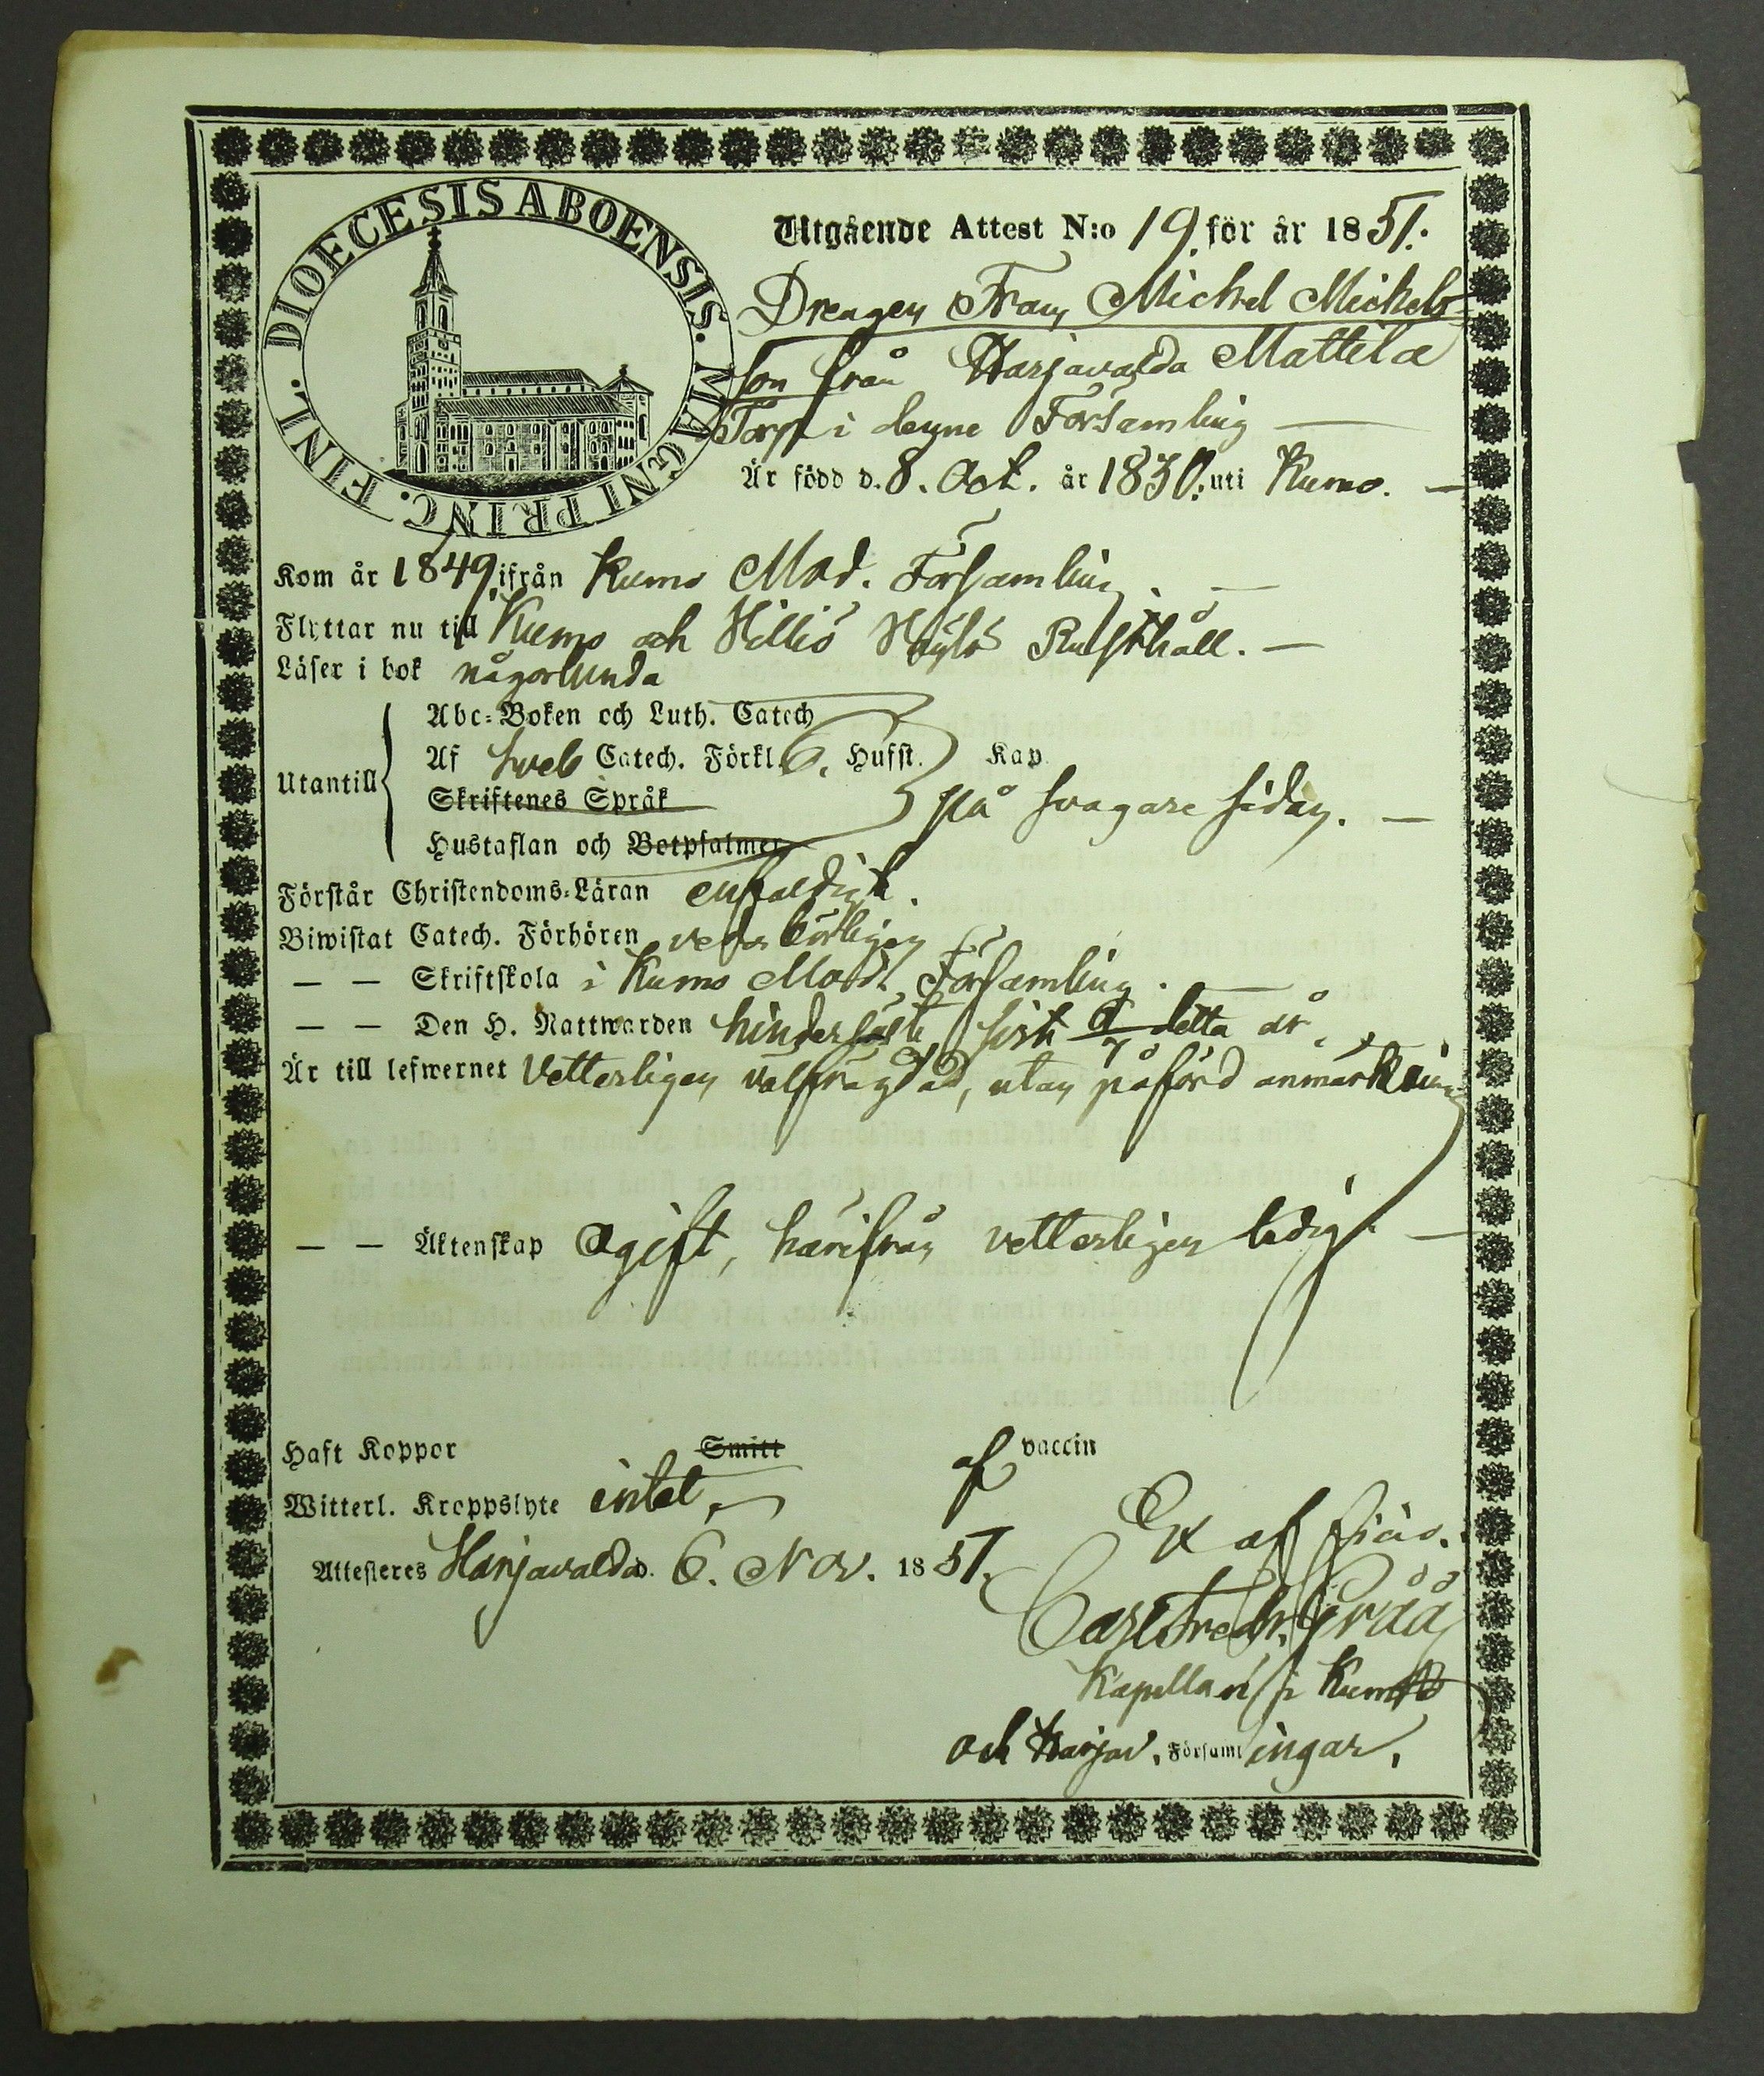 DIOECESIS ABOENSIS. MAGNI PRINC. FINL.
Utgående Attest N:o 19. för år 1851.
Drengen Frans Michel Mickels-
son från Harjavalda Mattila
Torp i denne Församling
Är född d. 8. Oct. år 1830. uti Kumo.
Kom år 1849. ifrån Kumo Mod. Församling.
Flyttar nu till Kumo och Rusthåll.
Läser i bok någorlunda
Utantill
Abc-Boken och Luth. Catech
Af Sveb Catech. Förkl. 6. Hufst. Kap.
Skriftenes Språk
på svagare sidan.
Hustaflan och Botpsalmer
Förstår Christendoms-Läran enfaldigt.
Biwistat Catech. Förhören vederbörligen
— — Skriftskola i Kumo Mod. Församling.
— — Den H. Nattwarden sist detta år.
Är till lefwernet Vetterligen välfrägdad, utan påförd anmärkning
— — Äktenskap Ogift, härifrån vetterligen ledig.
Haft Koppor Smitt af vaccin
Witterl. Kroppslyte intet.
Attesteres Harjavalda d. 6. Nov. 1851.
Ex off
Carl Fredr. Gråå
Kapellan i Kumo
och Harjav. Församlingar.